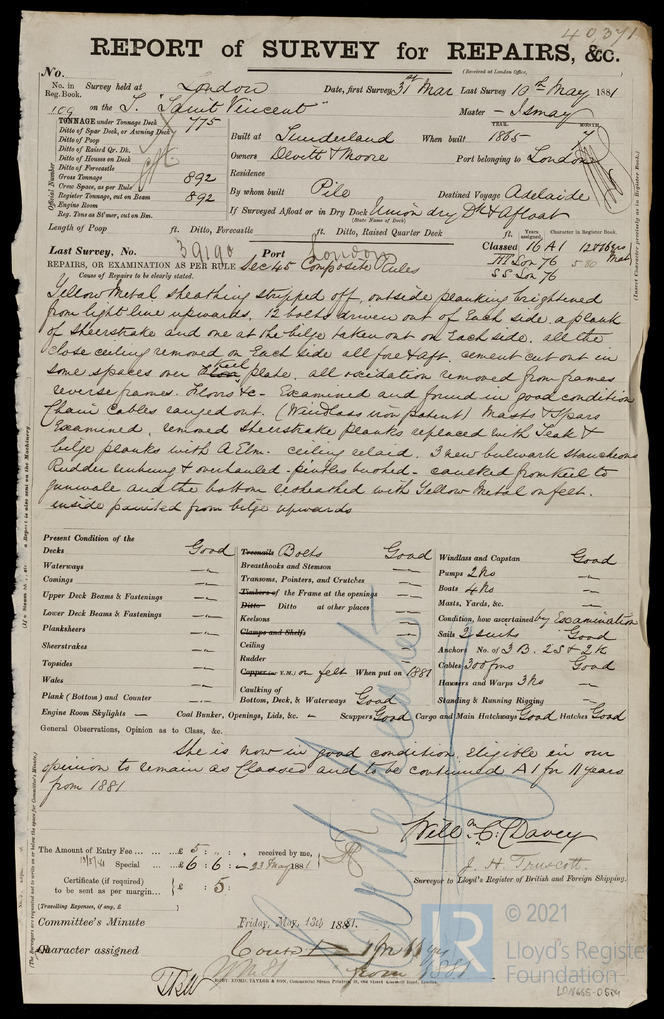 40,371
REPORT of SURVEY for REPAIRS, &c.
(Received at London Office,
No.
No. in Reg. Book. Survey held at London Date, first Survey 31st Mar Last Survey 10th May 1881
109 on the S. "Saint Vincent" Master - Ismay
TONNAGE under Tonnage Deck 775
Ditto of Spar Deck, or Awning Deck
Ditto of Poop
Ditto of Raised Qr. Dk.
Ditto of Houses on Deck
Ditto of Forecastle
Gross Tonnage 892
Crew Space, as per Rule
Register Tonnage, cut on Beam 892
Engine Room
Reg. Tons as St'mer, cut on Bm.
Official Number
Built at Sunderland When built YEAR. 1865 MONTH 7
Owners Devitt & Moore Port belonging to London
Residence
By whom built Pile Destined Voyage Adelaide
If Surveyed Afloat or in Dry Dock Union dry Dk & Afloat
(State Name of Dock)
Length of Poop ft. Ditto, Forecastle ft. Ditto, Raised Quarter Deck ft.
Years assigned. Character in Register Book.
Last Survey, No. 39190 Port London Classed 16 A1
REPAIRS, OR EXAMINATION AS PER RULE Sec 45 Composite Rules
Lon 76
SS Lon 76
Cause of Repairs to be clearly stated.
Yellow Metal Sheathing stripped off, outside planking brightened
from light line upwards. 12 bolts driven out of Each side, a plank
of Sheerstrake and one at the bilge taken out on Each side. all the
close ceiling removed on Each side all fore & aft. cement cut out in
some spaces over keel plate. all oxidation removed from frames
reverse frames. Floors &c - Examined and found in good condition
Chain Cables ranged out. (Windlass iron patent) Masts & Spars
Examined. removed Sheerstrake planks replaced with Teak &
bilge planks with A Elm. ceiling relaid. 3 new bulwark Stancheons
Rudder unhung & overhauled - pintles bushed - caulked from keel to
gunwale and the bottom resheathed with Yellow Metal on felt.
inside painted from bilge upwards
Present Condition of the
Decks Good
Waterways
Comings
Upper Deck Beams & Fastenings
Lower Deck Beams & Fastenings
Planksheers
Sheerstrakes
Topsides
Wales
Plank (Bottom) and Counter
Treenails Bolts Good
Breasthooks and Stemson
Transoms, Pointers, and Crutches
Timbers of the Frame at the openings
Ditto Ditto at other places
Keelsons
Clamps and Shelfs
Ceiling
Rudder
Copper (or Y.M.) on felt When put on 1881
Caulking of Bottom, Deck, & Waterways Good
Windlass and Capstan Good
Pumps 2 No
Boats 4 No
Masts, Yards, &c.
Condition, how ascertained by Examination
Sails 2 suits Good
Anchors No. of 3 B. 2 S & 2 K
Cables 300 fms Good
Hawsers and Warps 3 No
Standing & Running Rigging
Engine Room Skylights - Coal Bunker, Openings, Lids, &c. - Scuppers Good Cargo and Main Hatchways Good Hatches Good
General Observations, Opinion as to Class, &c.
She is now in good condition, eligible in our
opinion to remain as Classed and to be continued A1 for 11 years
from 1881
Willm C. Davey
J. H. Truscott.
Surveyor to Lloyd's Register of British and Foreign Shipping.
The Amount of Entry Fee ... £ 5 : : received by me,
Special ... £ 6 : 6 : - 23 May 1881
Certificate (if required) to be sent as per margin... £ : 5 :
(Travelling Expenses, if any, £ )
Committee's Minute Friday, May, 13th 1881.
Character assigned Contd A1 for 11 yrs
from 1881
© 2021
LR
Lloyd's Register
Foundation
LON665-0504